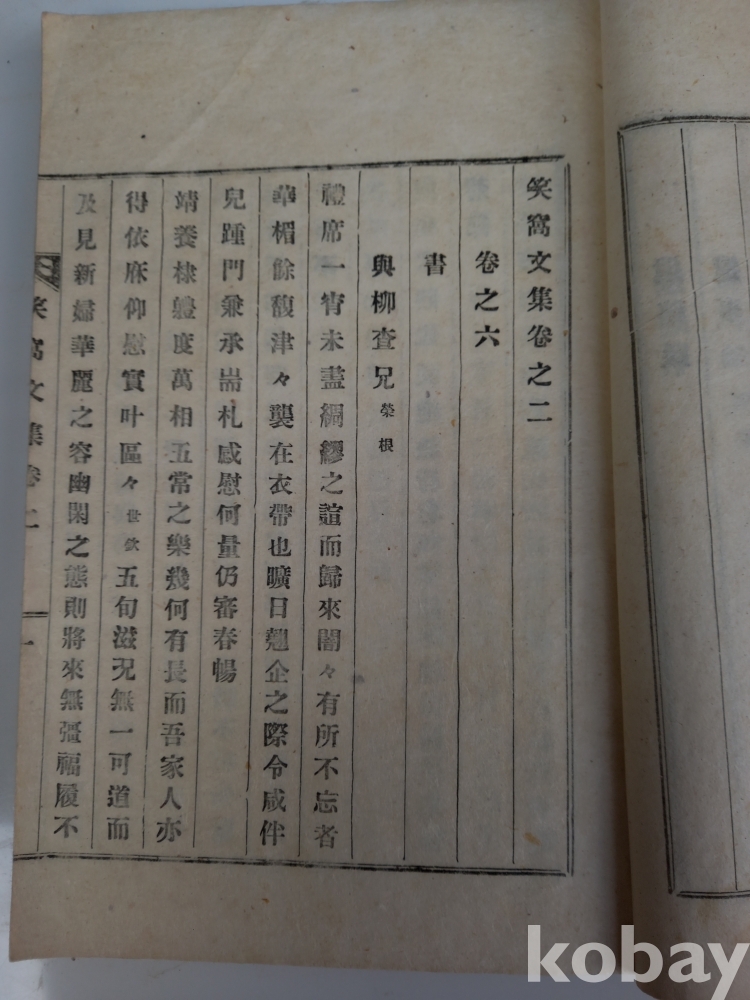 笑窩文集卷之二
卷之六
書
與柳査兄榮根
禮席一宵未盡綢繆之誼而歸來闇々有所不忘者
華楣餘馥津々襲在衣帶也曠日翹企之際令咸伴
兒踵門兼承耑札感慰何量仍審春暢
靖養棣軆度萬相五常之樂幾何有長而吾家人亦
得依庥仰慰實叶區々世欽五旬滋況無一可道而
及見新婦華麗之容幽閑之態則將來無彊福履不
笑窩文集卷二
一
kobay